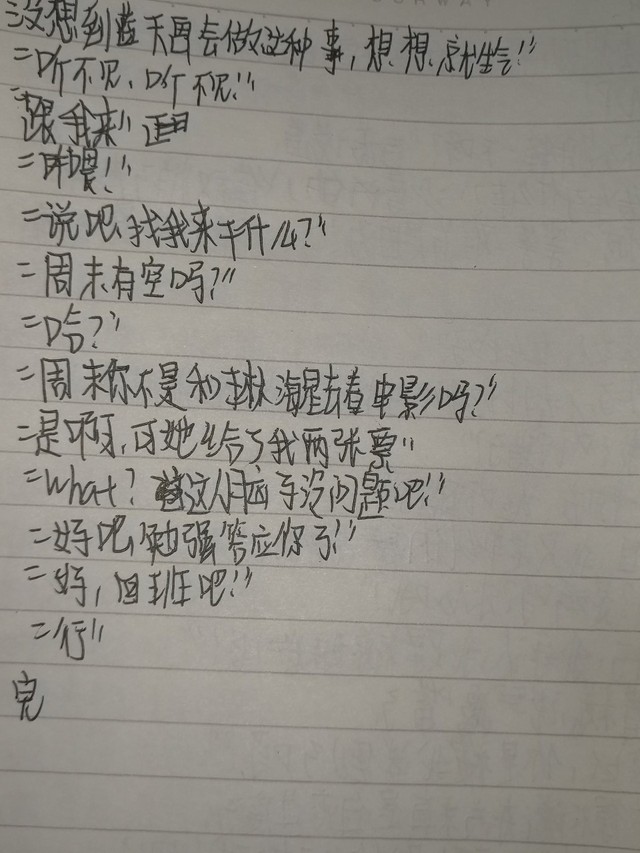 "没想到蓝天画会做这种事，想想就生气！"
"听不见，听不见！"
"跟我来！"
"听喂！"
"说吧，找我来干什么？"
"周末有空吗？"
"哈？"
"周末你不是和林海星去看电影吗？"
"是啊，可她给了我两张票"
"what？这人脑子没问题吧！"
"好吧，勉强答应你了！"
"好，回班吧！"
"行"
完